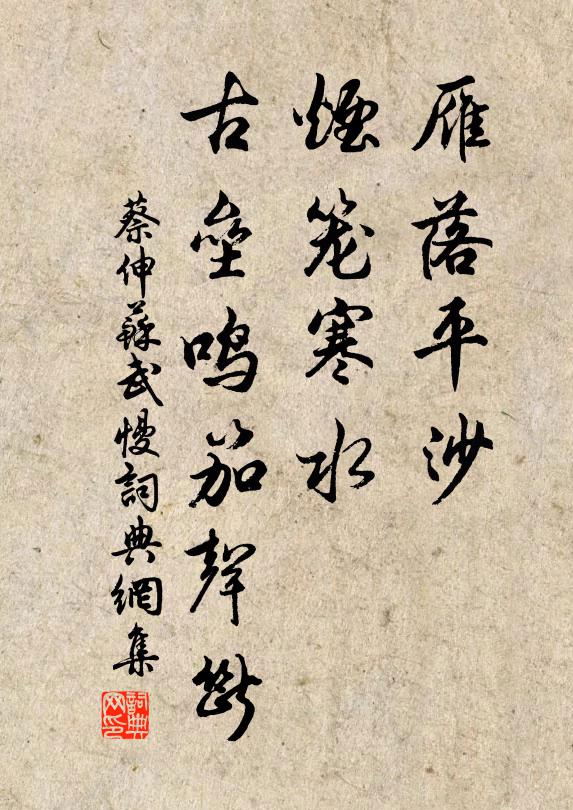 雁落平沙
煙笼寒水
古壘鳴笳聲斷
蔡伸蘇武慢詞典網集
詞典网印